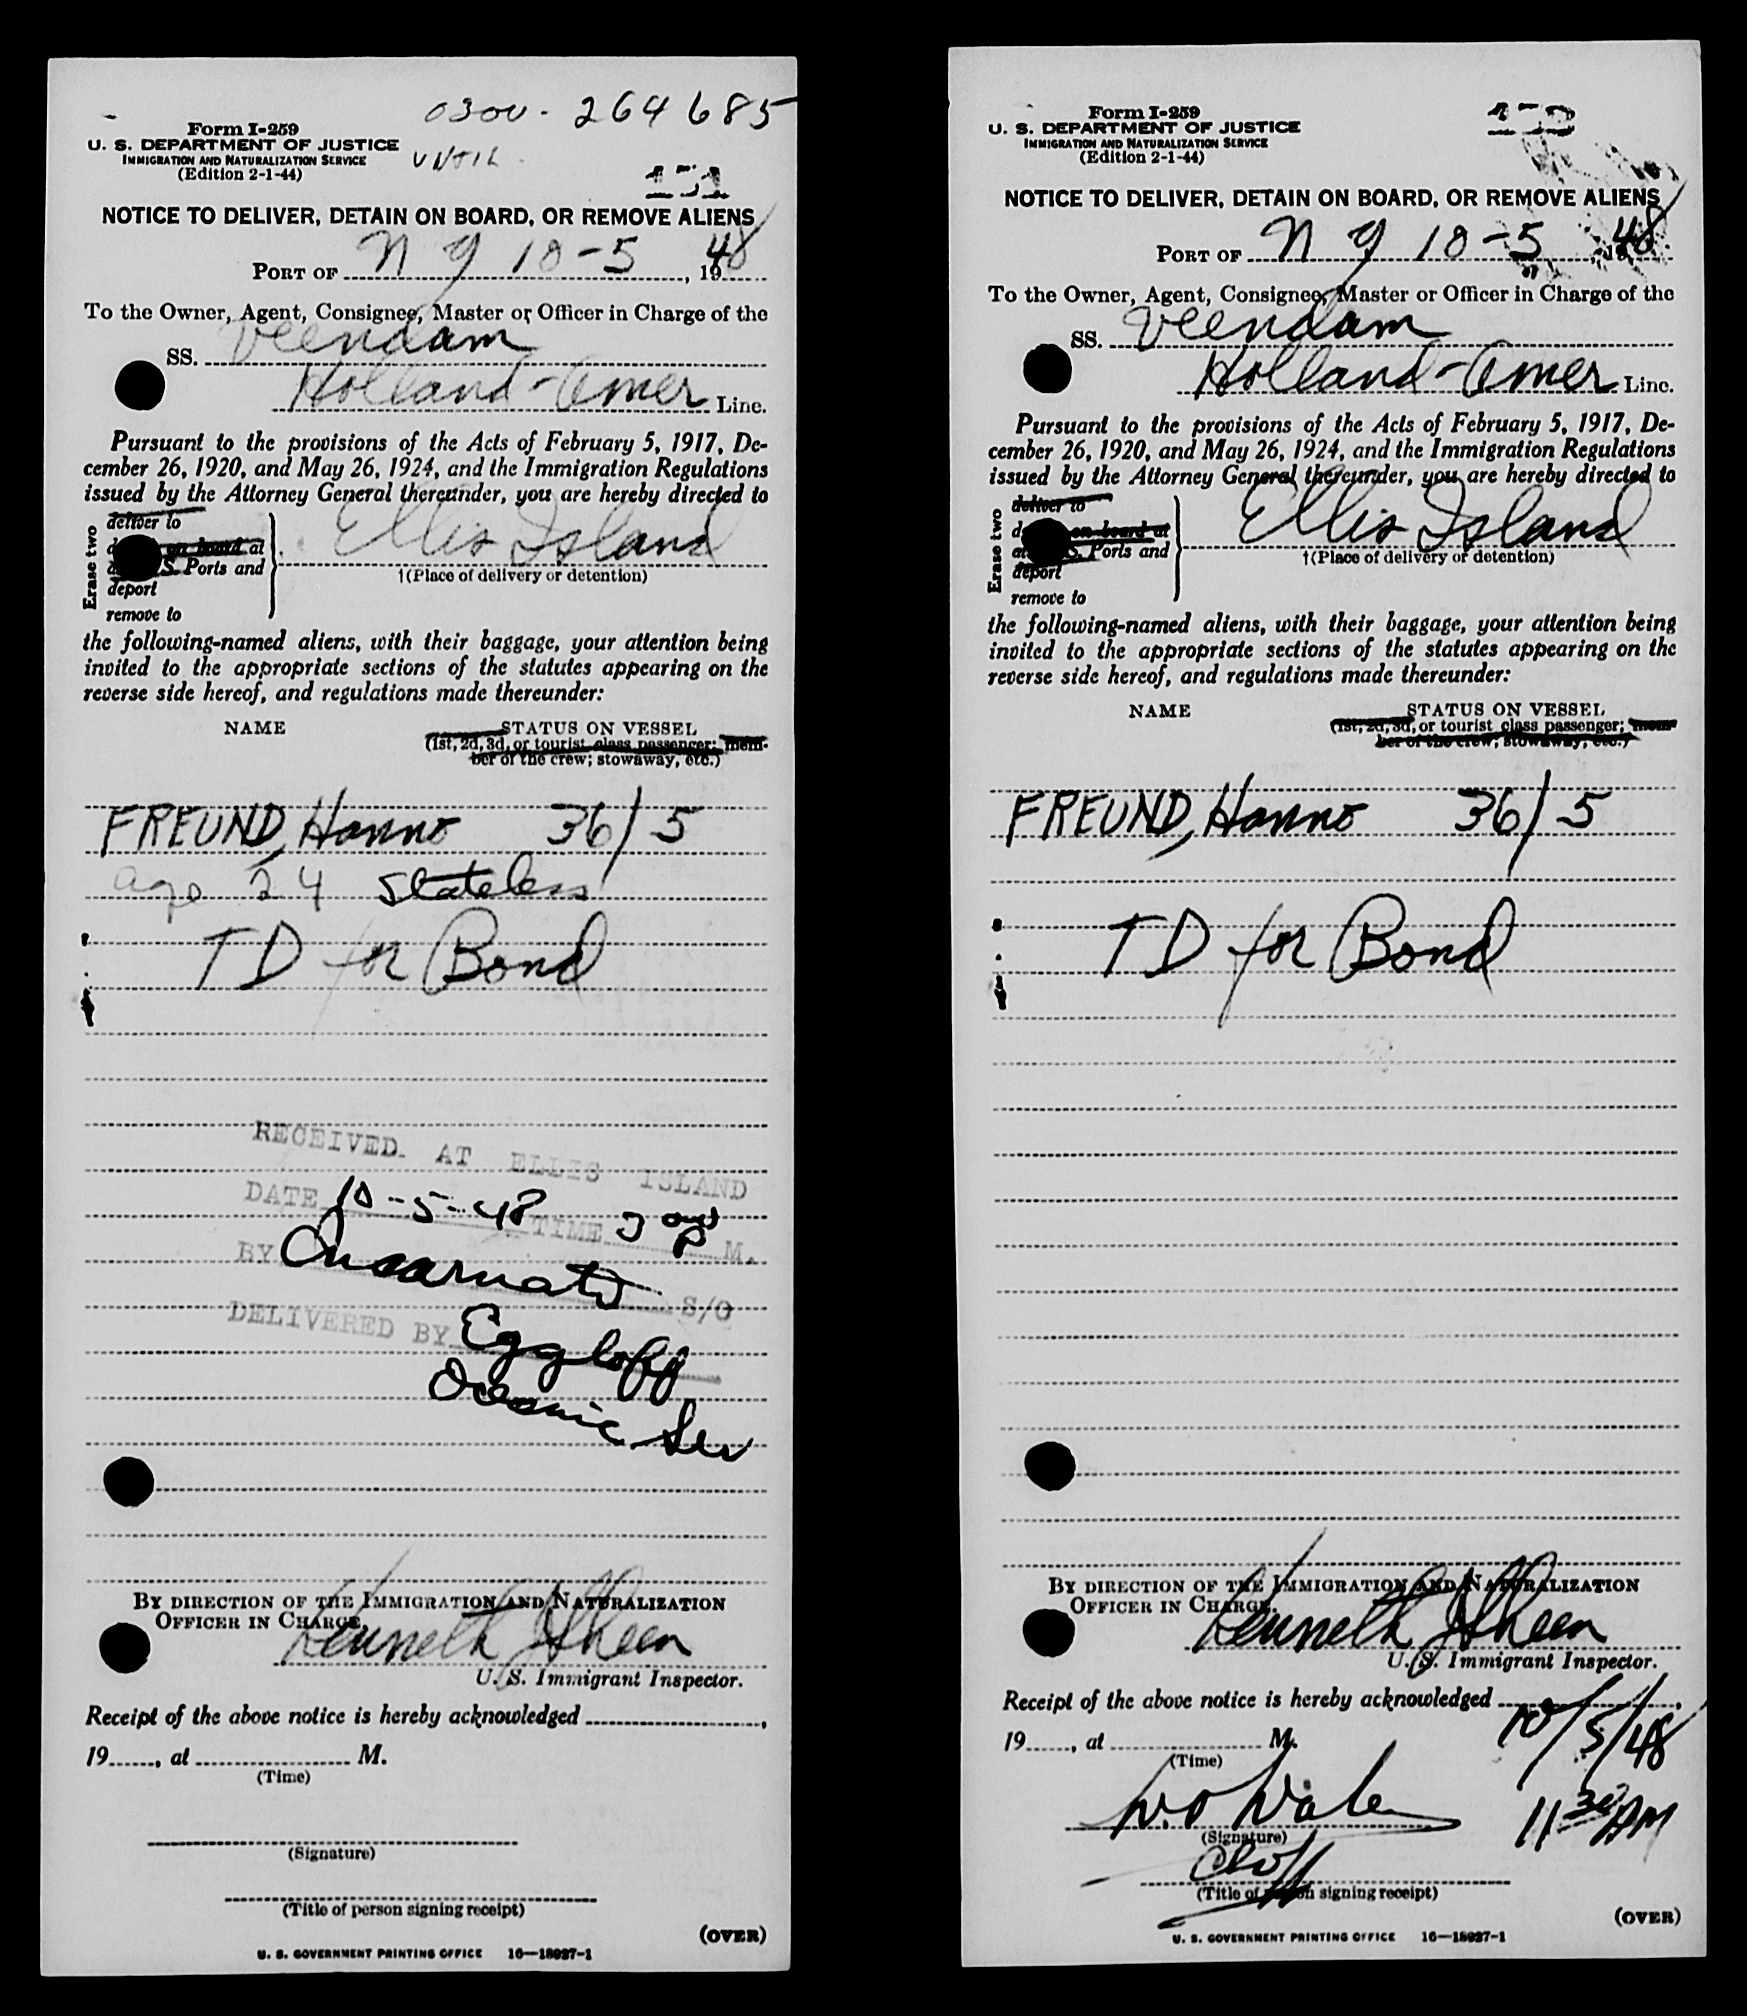 0300 - 264685
Form I-259
U. S. DEPARTMENT OF JUSTICE
IMMIGRATION AND NATURALIZATION SERVICE
(Edition 2-1-44)
NOTICE TO DELIVER, DETAIN ON BOARD, OR REMOVE ALIENS
PORT OF N Y 10-5, 1948
To the Owner, Agent, Consignee, Master or Officer in Charge of the
SS. Veendam
Holland-Amer Line.
Pursuant to the provisions of the Acts of February 5, 1917, De-
cember 26, 1920, and May 26, 1924, and the Immigration Regulations
issued by the Attorney General thereunder, you are hereby directed to
Erase two
deliver to
on board at
S. Ports and
deport
remove to
Ellis Island
†(Place of delivery or detention)
the following-named aliens, with their baggage, your attention being
invited to the appropriate sections of the statutes appearing on the
reverse side hereof, and regulations made thereunder:
NAME STATUS ON VESSEL
(1st, 2d, 3d, or tourist class passenger; mem-
ber of the crew; stowaway, etc.)
FREUND, Hanno 36/5
age 24 Stateless
TD for Bond
RECEIVED AT ELLIS ISLAND
DATE 10-5-48 TIME P M.
BY S/O
DELIVERED BY Eggloff
Oceanic Ser
BY DIRECTION OF THE IMMIGRATION AND NATURALIZATION
OFFICER IN CHARGE.
Kenneth
U. S. Immigrant Inspector.
Receipt of the above notice is hereby acknowledged ,
19 , at M.
(Time)
(Signature)
(Title of person signing receipt)
(OVER)
U. S. GOVERNMENT PRINTING OFFICE 16—18027-1
Form I-259
U. S. DEPARTMENT OF JUSTICE
IMMIGRATION AND NATURALIZATION SERVICE
(Edition 2-1-44)
NOTICE TO DELIVER, DETAIN ON BOARD, OR REMOVE ALIENS
PORT OF N Y 10-5, 1948
To the Owner, Agent, Consignee, Master or Officer in Charge of the
SS. Veendam
Holland-Amer Line.
Pursuant to the provisions of the Acts of February 5, 1917, De-
cember 26, 1920, and May 26, 1924, and the Immigration Regulations
issued by the Attorney General thereunder, you are hereby directed to
Erase two
deliver to
on board at
S. Ports and
deport
remove to
Ellis Island
†(Place of delivery or detention)
the following-named aliens, with their baggage, your attention being
invited to the appropriate sections of the statutes appearing on the
reverse side hereof, and regulations made thereunder:
NAME STATUS ON VESSEL
(1st, 2d, 3d, or tourist class passenger; mem-
ber of the crew; stowaway, etc.)
FREUND, Hanno 36/5
TD for Bond
BY DIRECTION OF THE IMMIGRATION AND NATURALIZATION
OFFICER IN CHARGE.
Kenneth
U. S. Immigrant Inspector.
Receipt of the above notice is hereby acknowledged 10/5/48,
19 , at M.
(Time)
11 30 AM
(Signature)
(Title of person signing receipt)
(OVER)
U. S. GOVERNMENT PRINTING OFFICE 16—18027-1